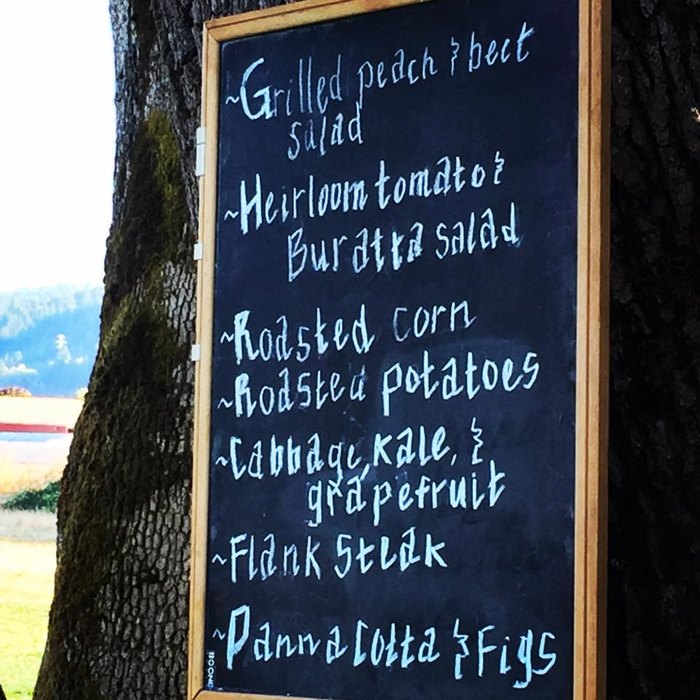 ~Grilled peach & beet
salad
~Heirloom tomato &
Buratta salad
~Roasted corn
~Roasted potatoes
~Cabbage, kale, &
grapefruit
~Flank Steak
~Panna Cotta & Figs
BOONE